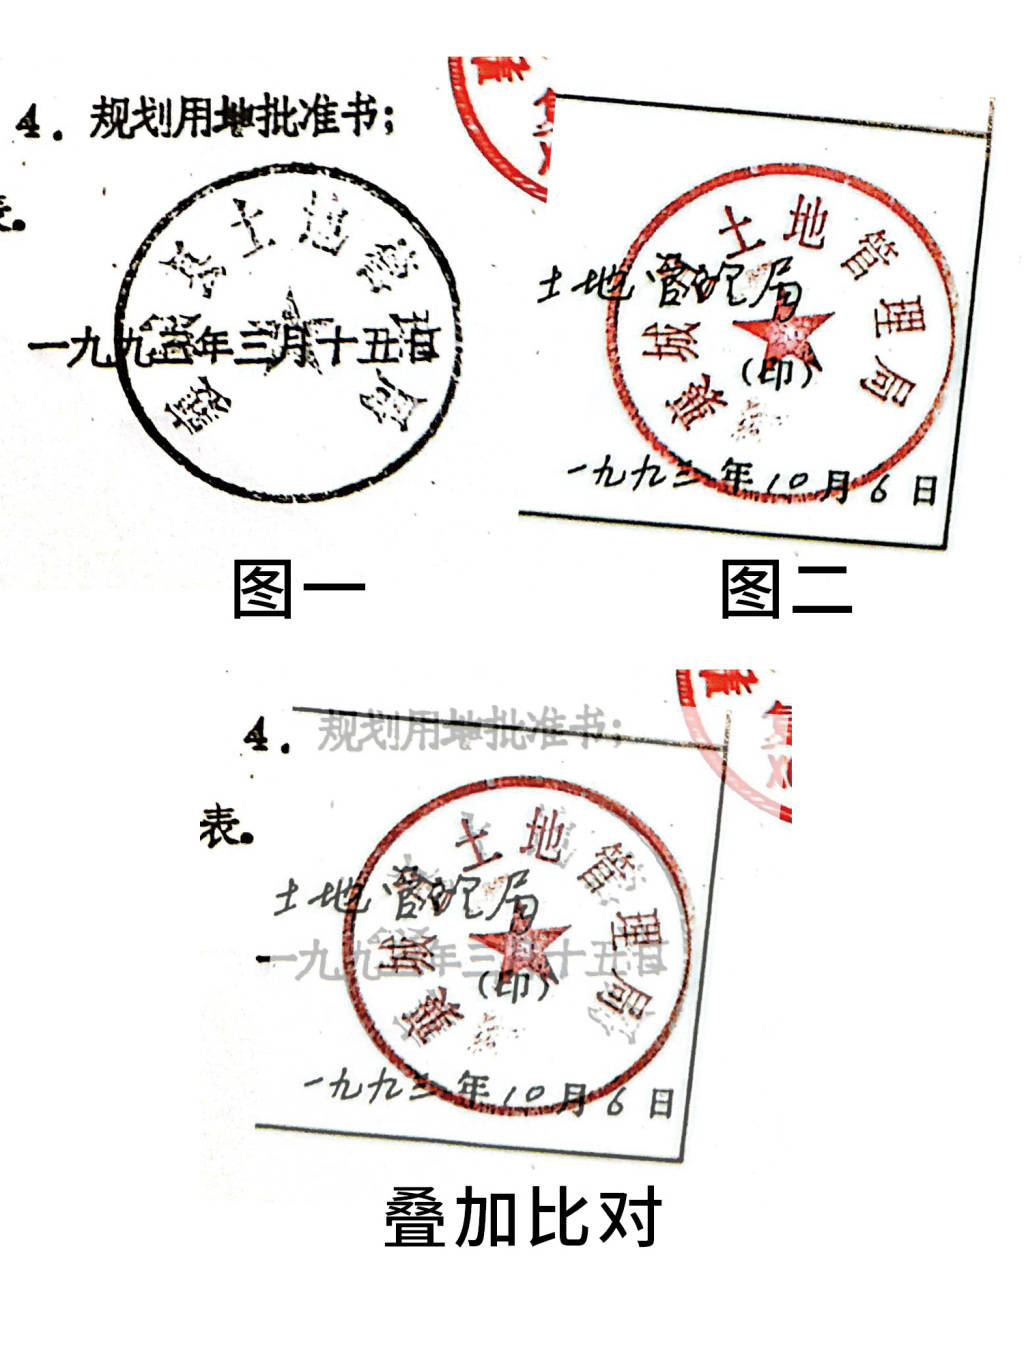 4. 规划用地批准书;
表。
土地管
局
一九九三年三月十五日
图一
城土地管理局
土地管理局
(印)
一九九三年10月6日
图二
4. 规划用地批准书;
表。
城土地管理局
土地管理局
一九九三年三月十五日
(印)
一九九三年10月6日
叠加比对